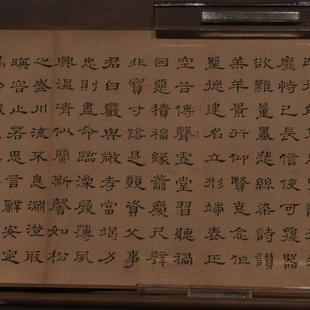 靡恃己長信使可覆器
欲難量墨悲絲染詩讚
羔羊景行仰賢克念作
聖德建名立形端表正
空谷傳聲虛堂習聽禍
因惡積福緣善慶尺璧
非寶寸陰是競資父事
君曰嚴與敬孝當竭力
忠則盡命臨深履薄夙
興溫凊似蘭斯馨如松
之盛川流不息淵澄取
暎容止若思言辭安定